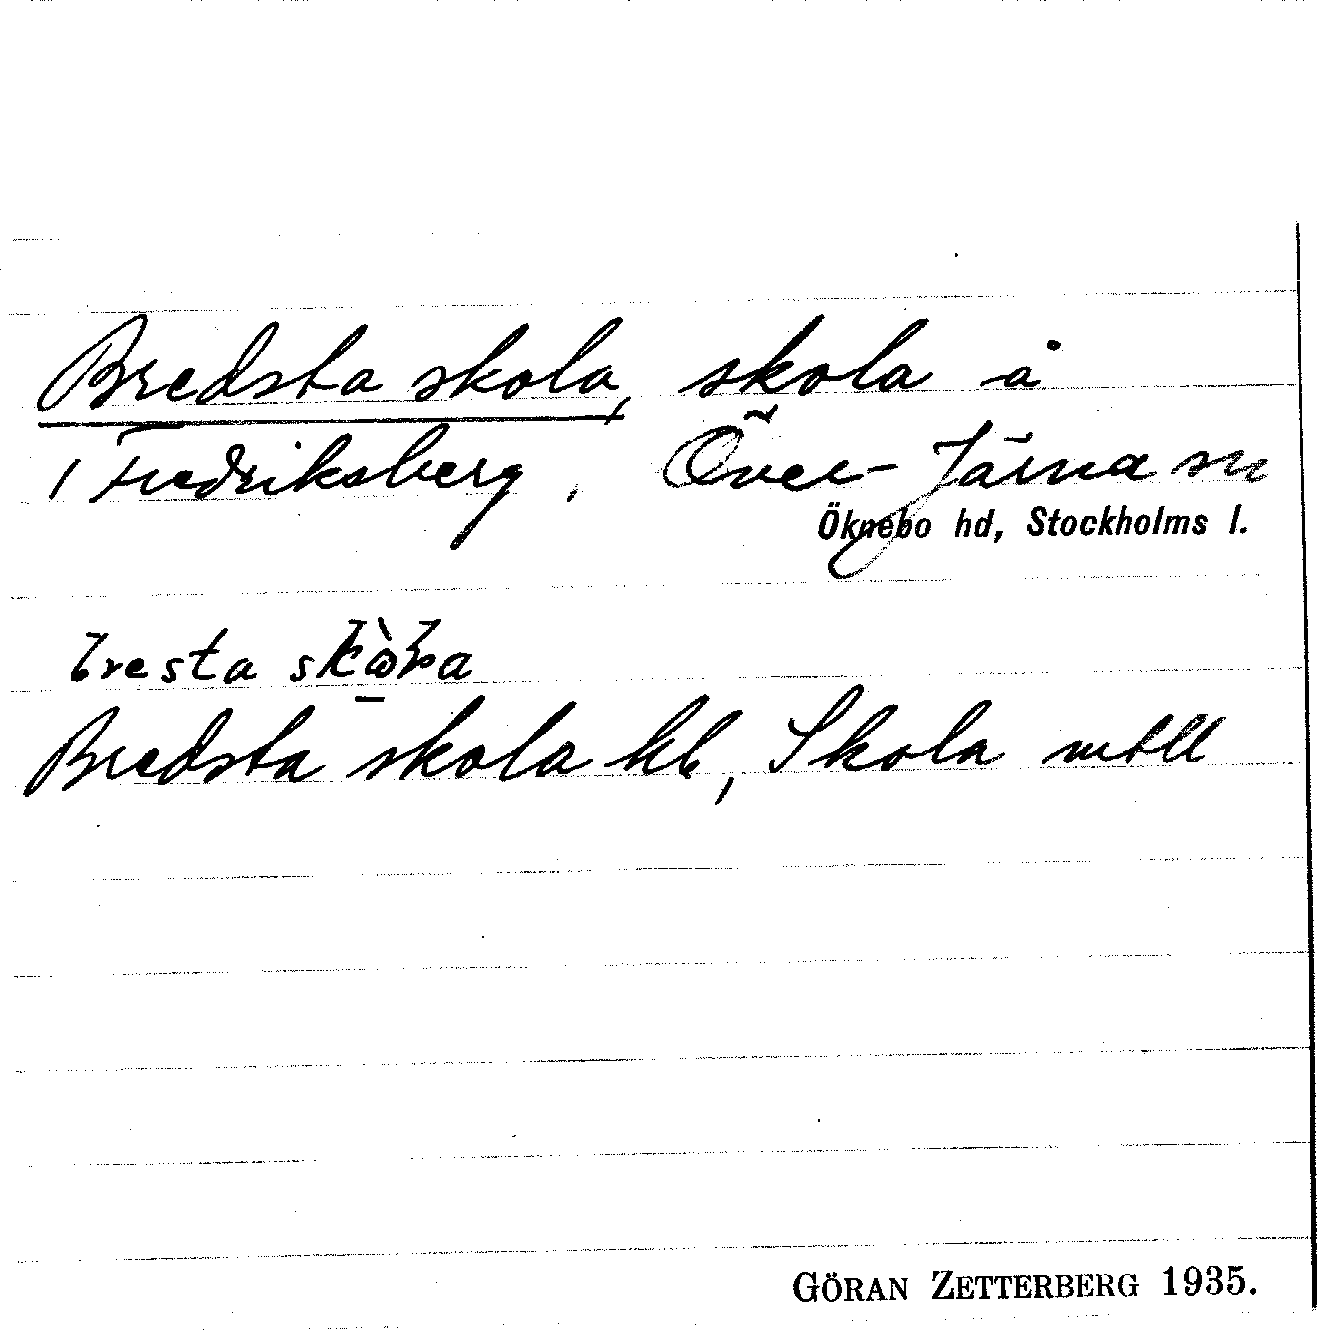 Bredsta skola, skola å
1 Fredriksberg, Över-Järna sn
Öknebo hd, Stockholms l.
bresta
Bredsta skola hb, Skola mtll
GÖRAN ZETTERBERG 1935.